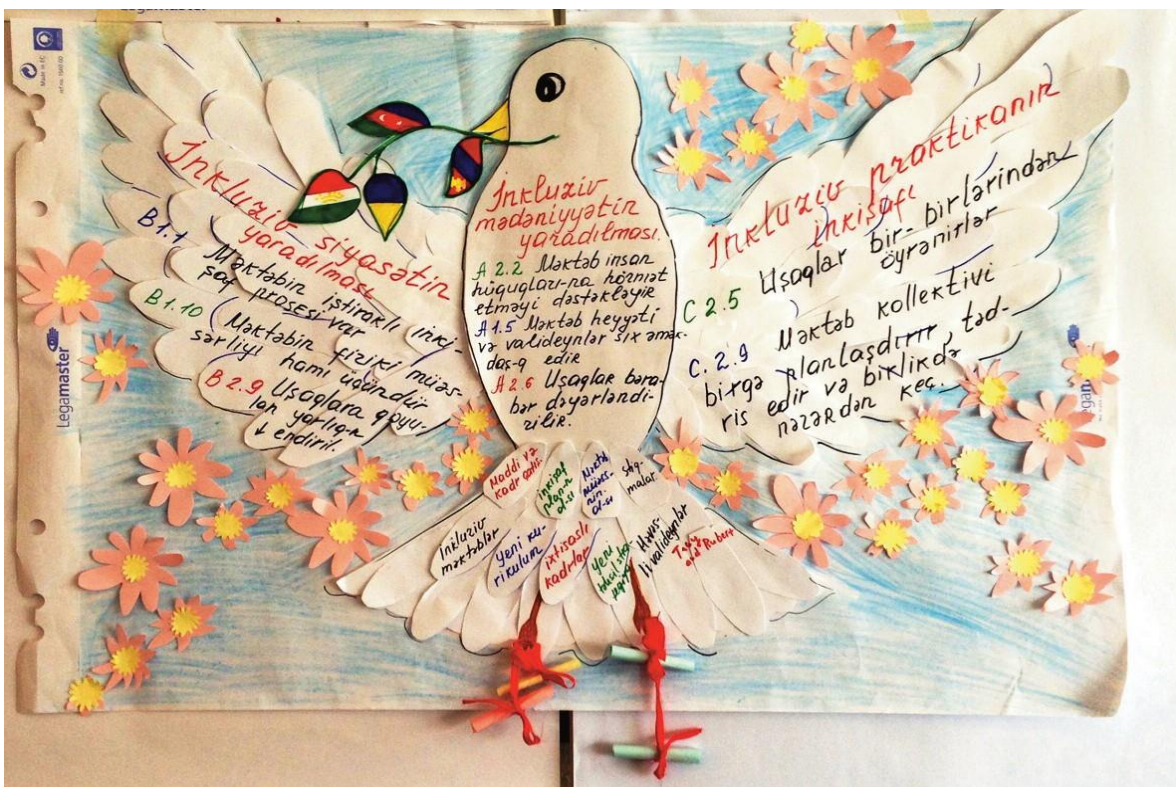 Legamaster
Made in EC
Legamaster
İnkluziv siyasətin
yaradılması
B1.1
Məktəbin iştiraklı inki-
şaf prosesi var
B1.10
Məktəbin fiziki müəs-
sərliyi hamı üçündür
B 2.9 Uşaqlara qoyu-
lan yarlıq-r
↓ endiril.
İnkluziv
mədəniyyətin
yaradılması.
A 2.2 Məktəb insan
hüquqları-na hörmət
etməyi dəstəkləyir
A 1.5 Məktəb heyyəti
və valideynlər sıx əmək-
daş-q edir
A 2.6 Uşaqlar bəra-
bər dəyərləndi-
rilir.
İnkluziv praktikanın
inkişafı
C 2.5 Uşaqlar bir-birlərindən
öyrənirlər
C. 2.9 Məktəb kollektivi
birgə planlaşdırır, təd-
ris edir və birlikdə
nəzərdən keç.
Maddi və
kadr
inkişaf
plan-n
ol-sı
Məktəb
ol-sı
malar.
İnkluziv
məktəblər
Yeni ku-
rikulum
ixtisaslı
kadrlar
yeni
Həvəs-
li valideynlər
Tony
and Rubert
Legamaster